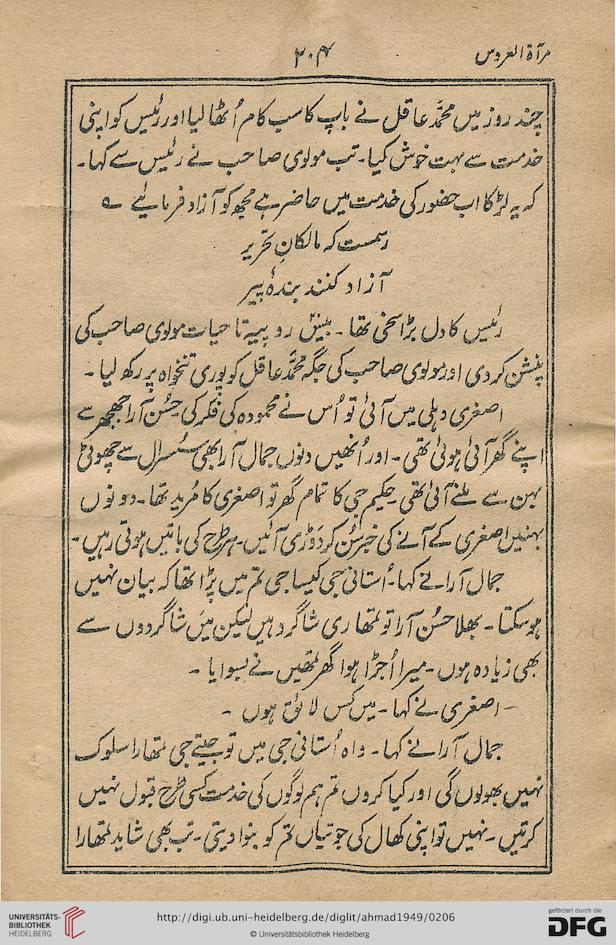 مرآۃ العروس
۲۰۴
چند روز میں محمّد عاقل نے باپ کا سب کام اُٹھا لیا اور رئیس کو اپنی
خدمت سے بہت خوش کیا۔ تب مولوی صاحب نے رئیس سے کہا۔
کہ یہ لڑکا اب حضور کی خدمت میں حاضر ہے مجھ کو آزاد فرمائیے ؎
رسمست کہ مالکانِ تحریر
آزاد کنند بندۂ پیر
رئیس کا دل بڑا سخی تھا۔ بیس روپیہ تا حیات مولوی صاحب کی
پنشن کر دی اور مولوی صاحب کی جگہ محمّد عاقل کو پوری تنخواہ پر رکھ لیا۔
اصغری دہلی میں آئی تو اُس نے محمودہ کی فکر کی حُسن آرا جھجھر سے
اپنے گھر آئی ہوئی تھی۔ اور اُنھیں دنوں جمال آرا بھی سُسرال سے چھوٹی
بہن سے ملنے آئی تھی۔ حکیم جی کا تمام گھر تو اصغری کا مُرید تھا۔ دونوں
بہنیں اصغری کے آنے کی خبر سُن کر دَوڑی آئیں۔ ہر طرح کی باتیں ہوتی رہیں۔
جمال آرا نے کہا۔ اُستانی جی کیسا جی تم میں پڑا تھا کہ بیان نہیں
ہو سکتا۔ بھلا حسُن آرا تو تمھاری شاگرد ہیں لیکن مَیں شاگردوں سے
بھی زیادہ ہوں۔ میرا اُجڑا ہوا گھر تمھیں نے بسوایا۔
اصغری نے کہا۔ میں کس لائق ہوں۔
جمال آرا نے کہا۔ واہ اُستانی جی میں تو جیتے جی تمھارا سلوک
نہیں بھولوں گی اور کیا کروں تم ہم لوگوں کی خدمت کسی طرح قبول نہیں
کرتیں۔ نہیں تو اپنی کھال کی جوتیاں تم کو بنوا دیتی۔ تب بھی شاید تمھارا
UNIVERSITÄTS-
BIBLIOTHEK
HEIDELBERG
http://digi.ub.uni-heidelberg.de/diglit/ahmad1949/0206
© Universitätsbibliothek Heidelberg
gefördert durch die
DFG